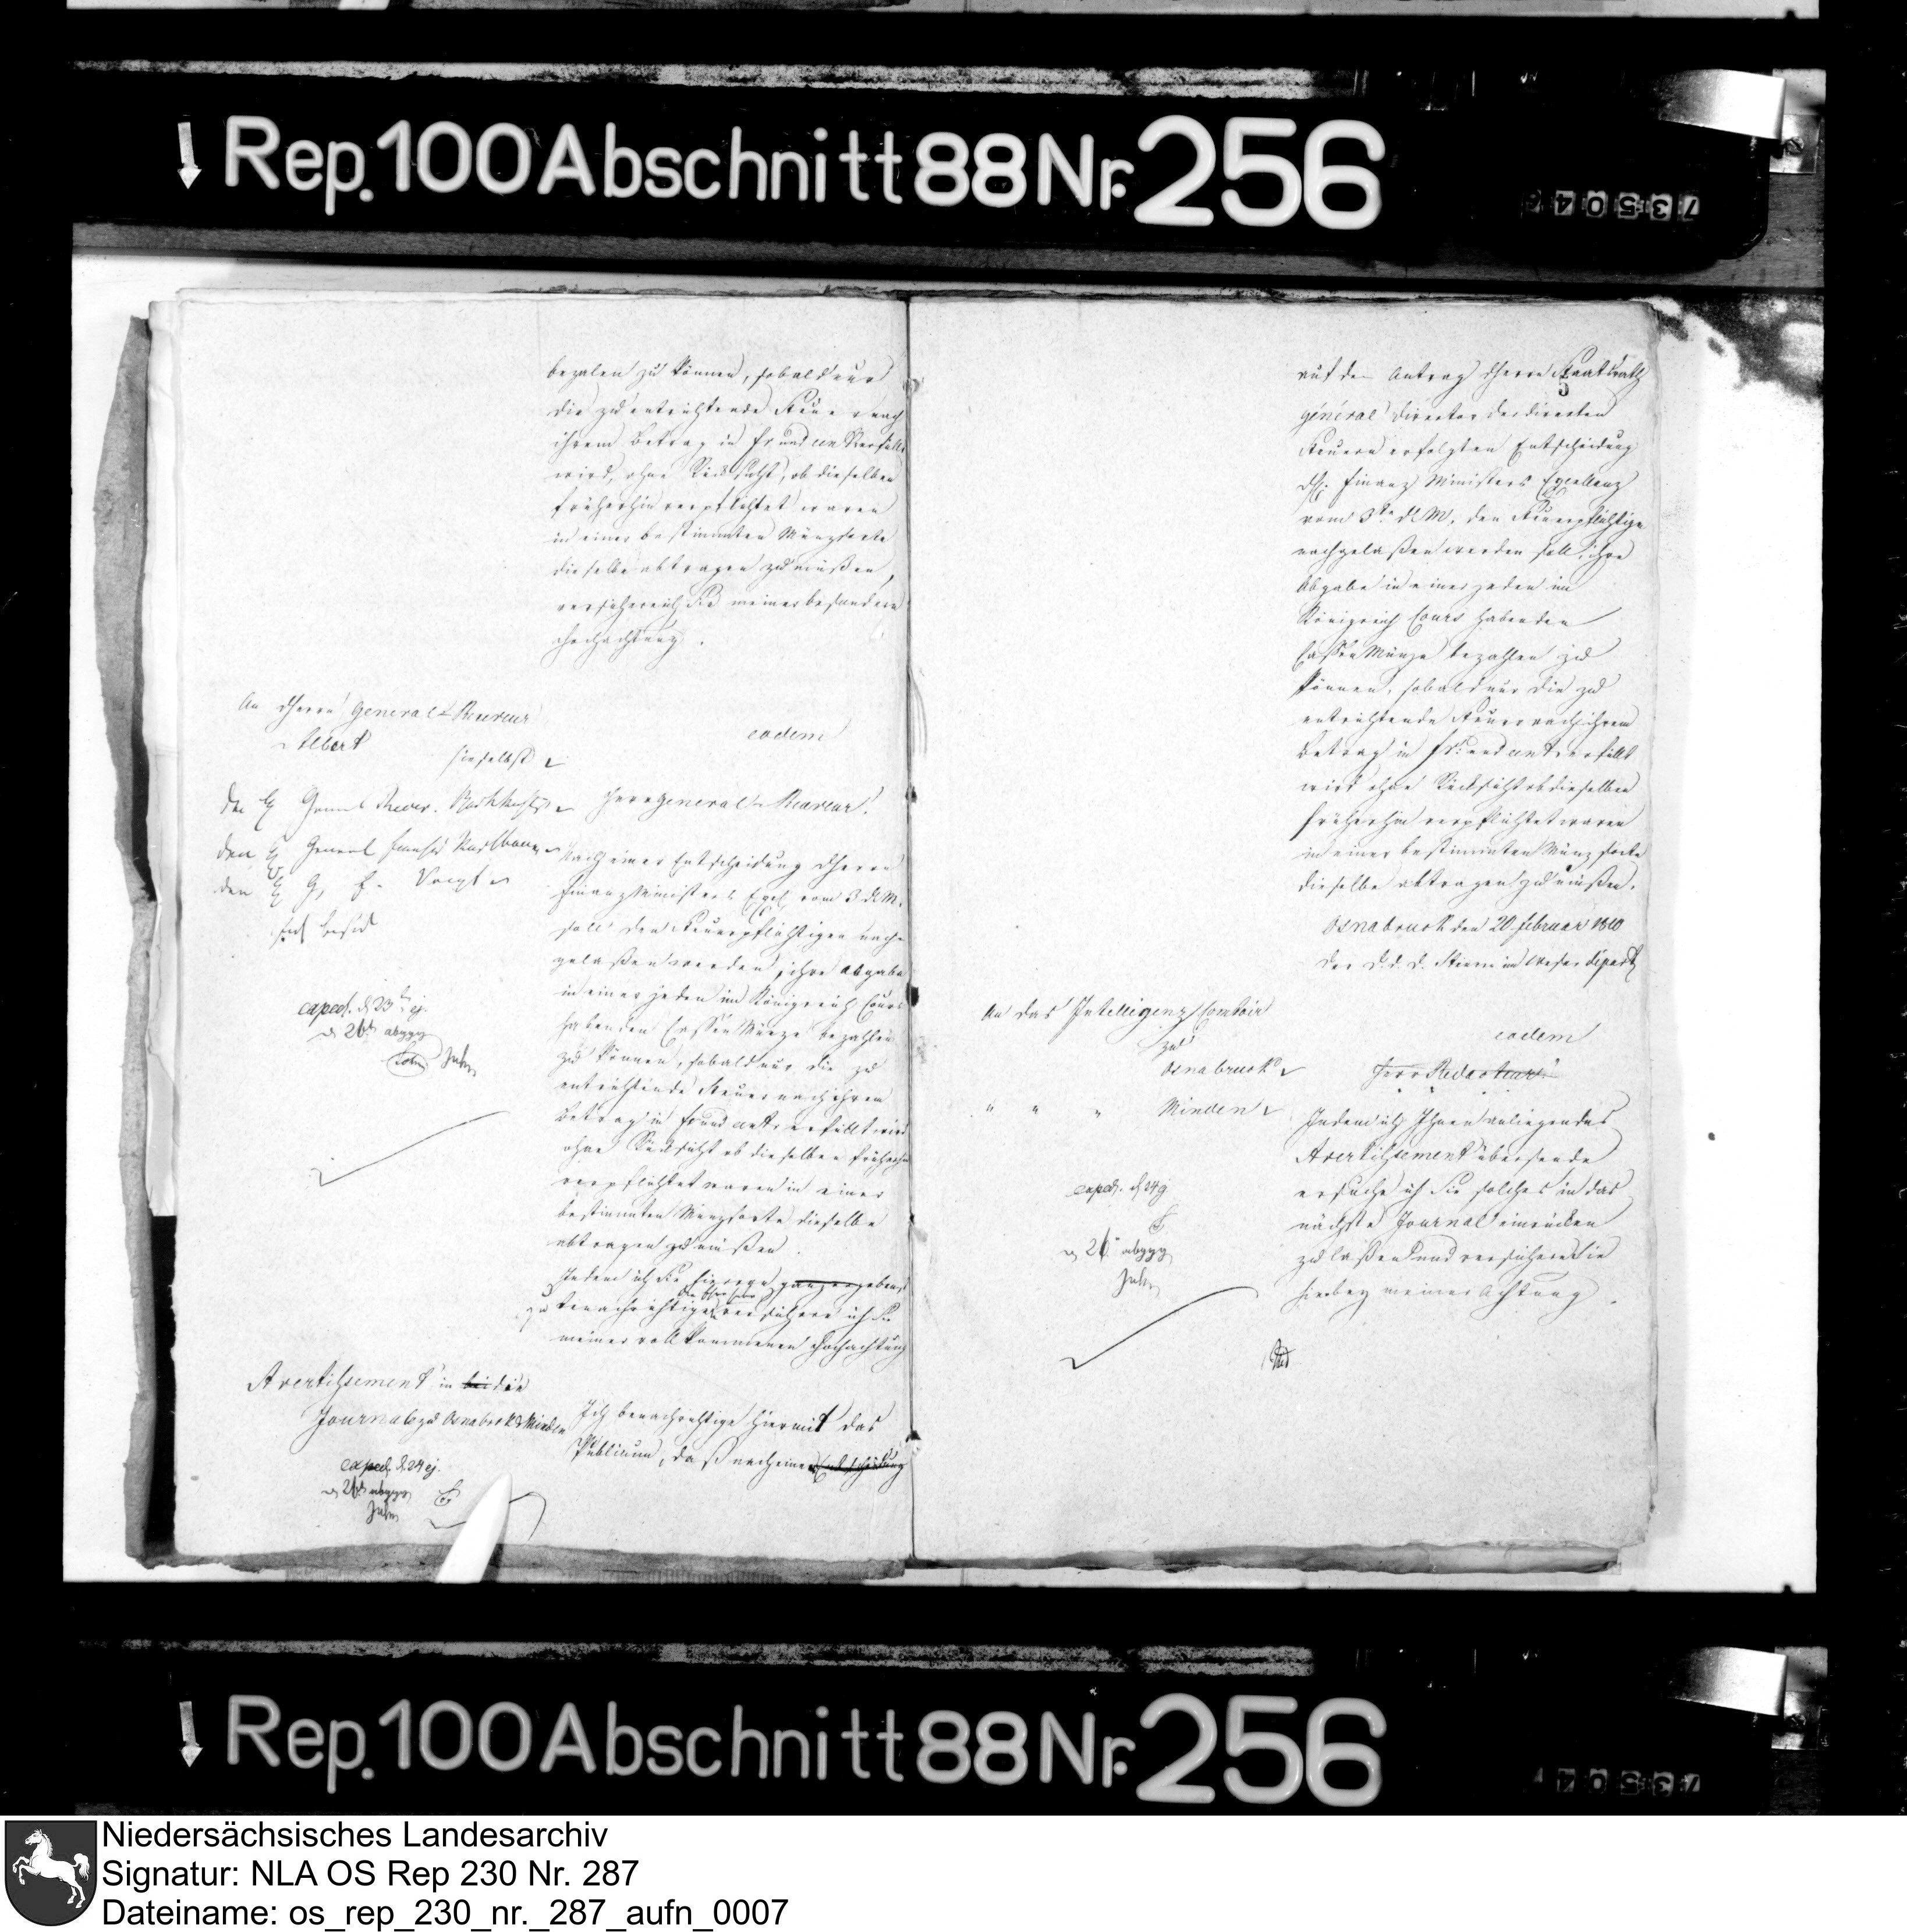 Rep. 100 Abschnitt 88 Nr. 256
73504
bezalen zu können, sobald nur
die zu entrichtende Steuer nach
ihrem Betrag in fr und cent erfüllt
wird, ohne Rücksicht, ob dieselben
früherhin verpflichtet waren
in einer bestimmten Münzsorte
dieselbe abtragen zu müßen,
versichere ich Sie meiner besondern
Hochachtung.
An Herrn General-Receveur
Albert
hieselbst
eodem
Herr General-Receveur!
Nach einer Entscheidung des Herrn
Finanz Ministers Exc. vom 3 d. M.
soll den Steuerpflichtigen nach-
gelaßen werden, ihre Abgabe
in einer jeden im Königreich Cours
habenden Cassen Münze bezahlen
zu können, sobald nur die zu
entrichtende Steuer nach ihrem
Betrag in fr und cent. erfüllt wird
ohne Rücksicht ob dieselben früherhin
verpflichtet waren in einer
bestimmten Münzsorte dieselbe
abtragen zu müßen.
Indem ich Sie hievon ganz ergebenst
zu benachrichtigen versichere ich Sie
meiner vollkommenen Hochachtung
exped. d. 23 ej.
26 abgeg
Avertissement in die
Journale zu Osnabrück & Minden
exped. d. 24 ej.
26 abgeg
Ich benachrichtige hiermit das
Publicum, daß nach einer Entscheidung
5
auf den Antrag des Herrn Staatsrath
général Director der directen
Steuern erfolgten Entscheidung
des Finanz Ministers Excellenz
vom 3ten d. M. den Steuerpflichtigen
nachgelaßen werden soll, ihre
Abgabe in einer jeden im
Königreich Cours habenden
Cassen Münze bezahlen zu
können, sobald nur die zu
entrichtende Steuer nach ihrem
Betrag in fr: und cent. erfüllt
wird ohne Rücksicht ob dieselben
früherhin verpflichtet waren
in einer bestimmten Münzsorte
dieselbe abtragen zu müßen.
Osnabrück den 20 februar 1810
Der D. d. d. Steuern im Weser départ
An das Intelligenz Comtoir
zu
Osnabrück
" " " Minden
exped. d. 24 ej
26 abgeg
eodem
Herr Redacteur!
Indem ich Ihnen anliegendes
Avertissement übersende
ersuche ich Sie solches in das
nächste Journal einrücken
zu laßen und versichere Sie
hierbey meiner Achtung.
Rep. 100 Abschnitt 88 Nr. 256
73504
Niedersächsisches Landesarchiv
Signatur: NLA OS Rep 230 Nr. 287
Dateiname: os_rep_230_nr._287_aufn_0007